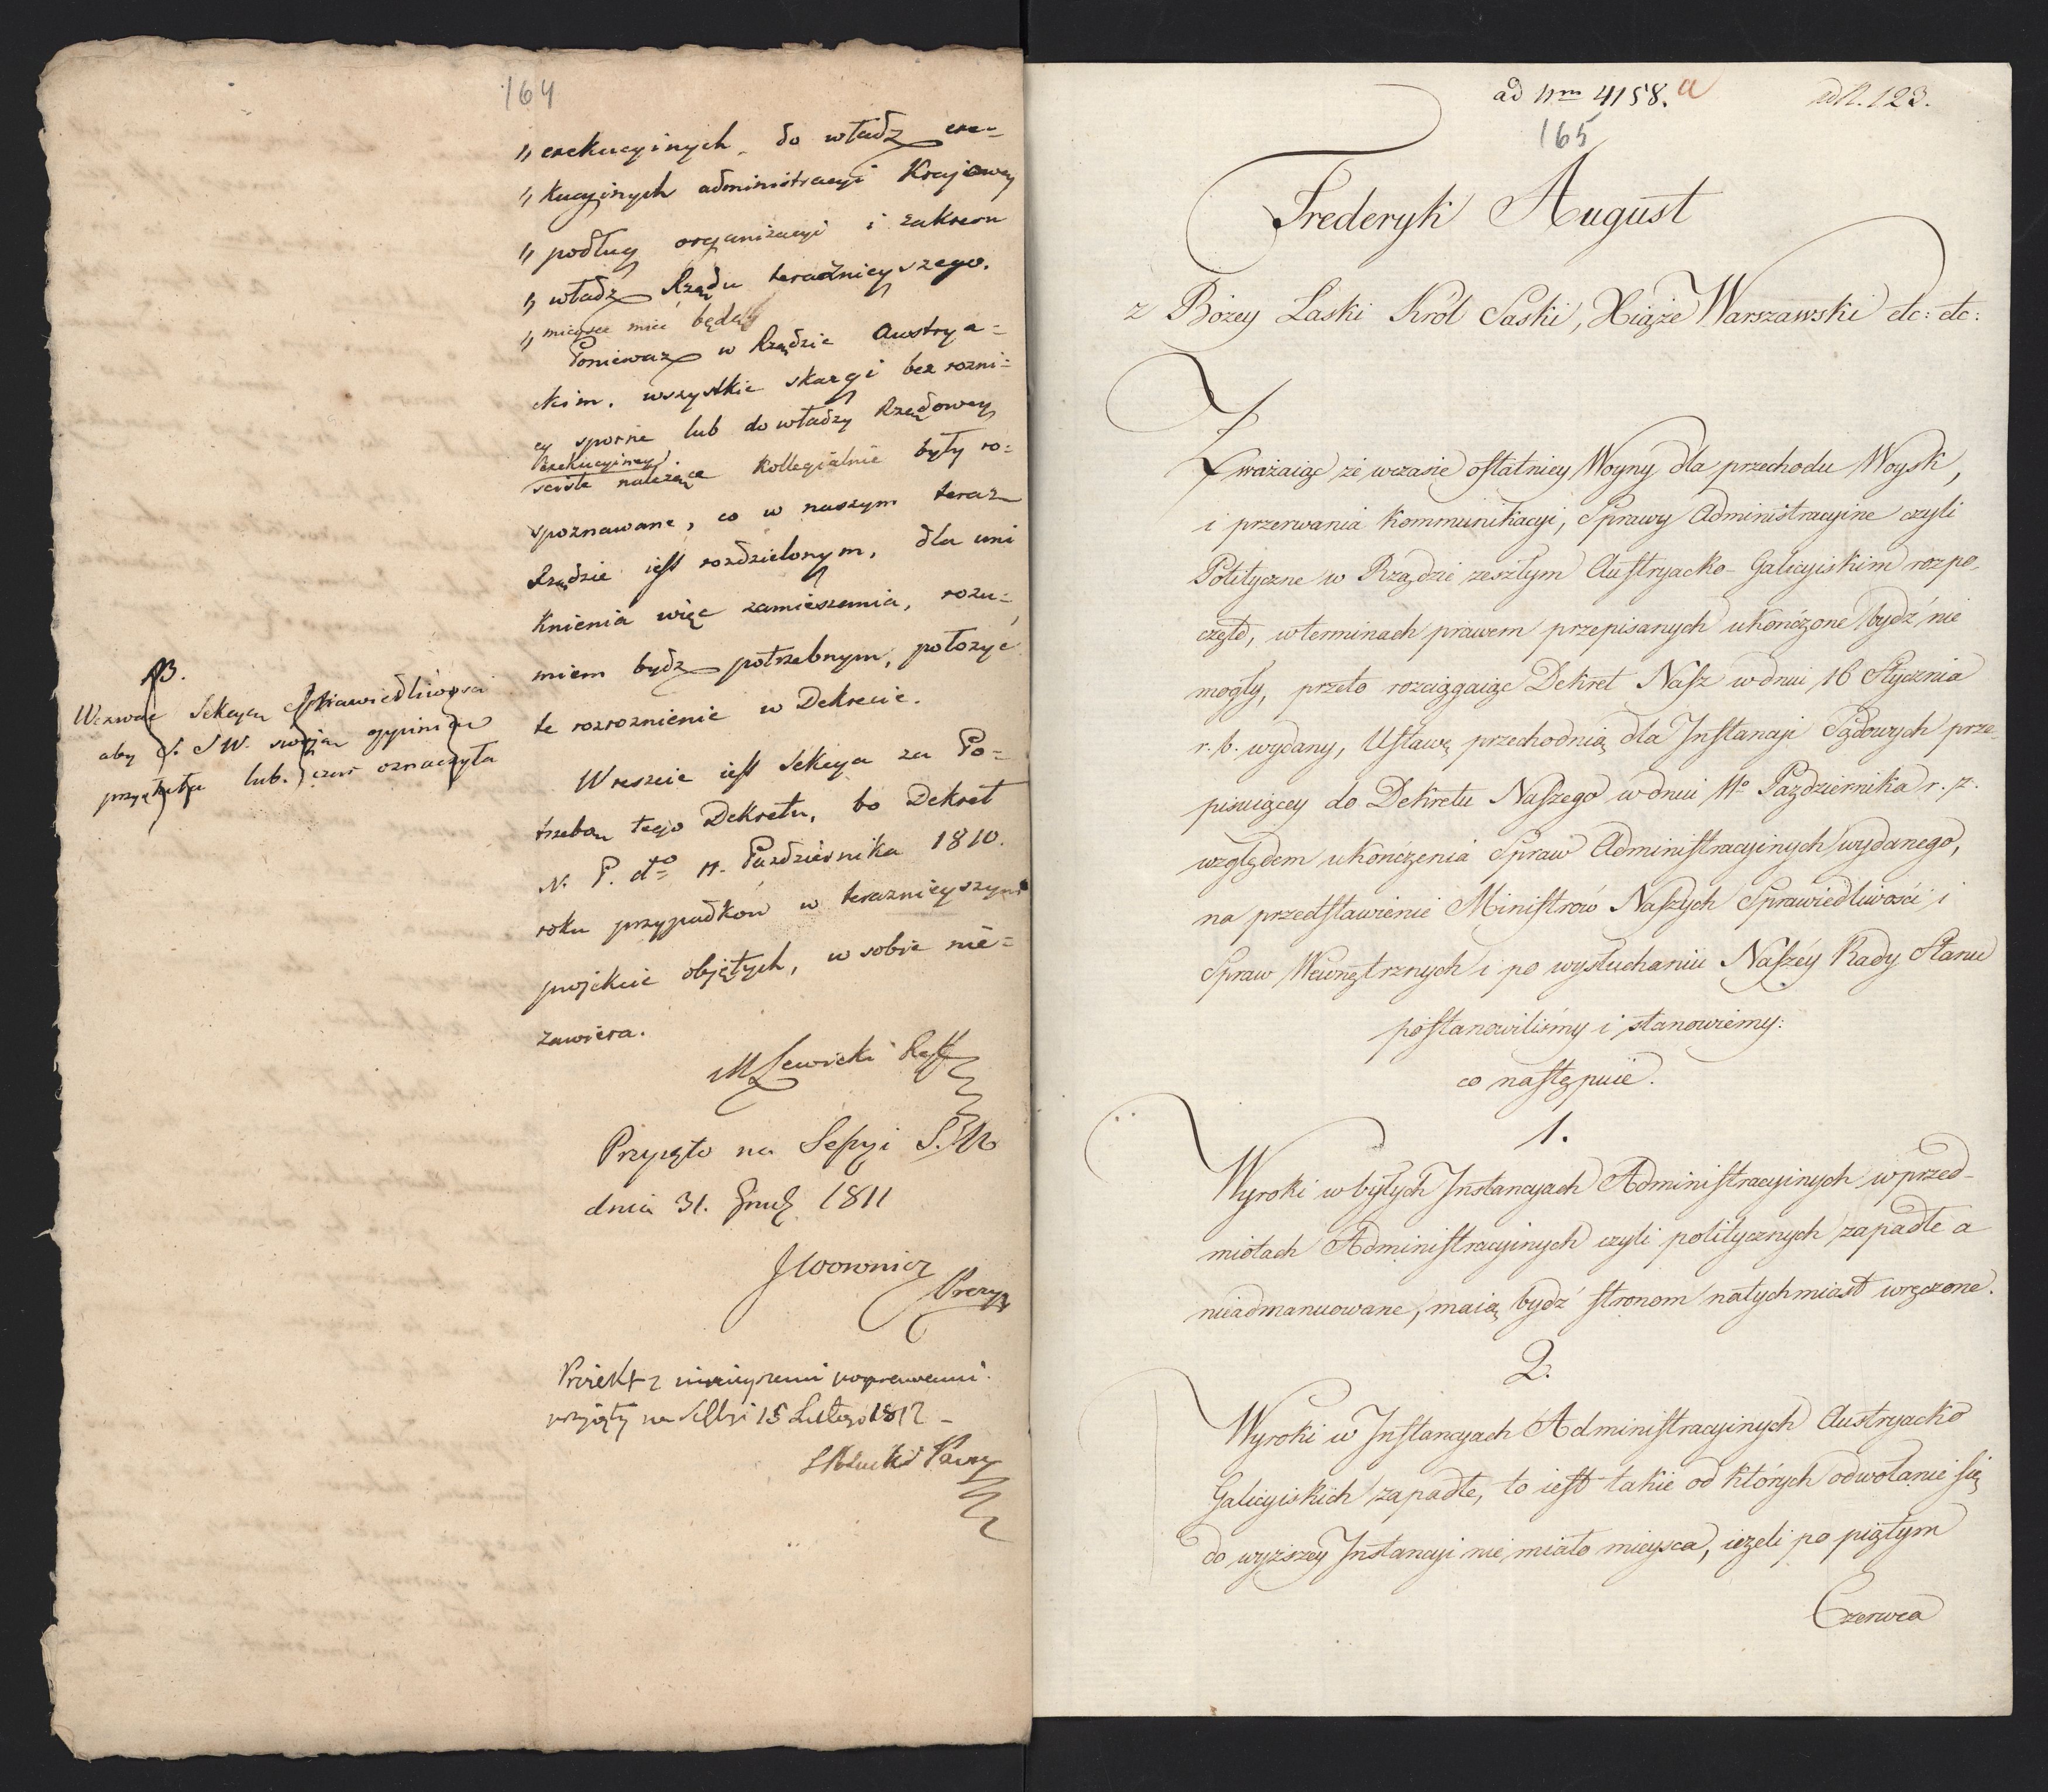 164
" exekucyinych, do władz exe-
" kucyinych administracyi Krajowey
" podług organizacyi i zakresu
" władz Rządu teraźnieyszego.
" mieysce mieć będą
Ponieważ w Rządzie Austrya=
ckim, wszystkie skargi bez rozni=
cy sporne lub do władzy Rządowey
Exekucyiney
ściśle należące kollegialnie były ro=
spoznawane, co w naszym teraz
Rządzie iest rozdzielonym, dla uni
knienia więc zamieszania, rozu=
miem bydz potrzebnym, położyć
te rozroznienie w Dekrecie.
Wreszcie iest Sekcya za Po=
trzebą tego Dekretu, bo Dekret
N. P. dto 11. Października 1810.
roku przypadków w teraznieyszym
projekcie objętych, w sobie nie=
zawiera.
M Lewicki Reff
Przyięto na Sessyi S. W
dnia 31. Grud 1811
Prezy
NB.
Wezwać Sekcyą Sprawiedliwości
aby S. S W. swoją opinią
przyięła lub oznaczyła
Proiekt z ninieyszemi poprawami
przyięty na Sessyi 15 Lutego 1812 -
ad Nm 4158. a
ad N. 123.
165
Frederyk August
z Bożey Laski Król Saski, Xiąże Warszawski etc: etc:
Zważaiąc że wczasie ostatniey Woyny dla przechodu Woysk,
i przerwania Kommunikacyi, Sprawy Administracyine czyli
Polityczne w Rządzie zeszłym Austryacko-Galicyiskim rozpo-
częte, w terminach prawem przepisanych ukończone bydź nie
mogły, przeto rozciągaiąc Dekret Nasz w dniu 16 Stycznia
r. b. wydany, Ustawę przechodnią dla Instancji Sądowych prze-
pisuiącey do Dekretu Naszego w dniu 11o Października r. z.
względem ukończenia Spraw Administracyinych wydanego,
na przedstawienie Ministrów Naszych Sprawiedliwości i
Spraw Wewnętrznych i po wysłuchaniu Naszéy Rady Stanu
postanowiliśmy i stanowiemy:
co następuie.
1.
Wyroki w byłych Instancyach Administracyinych w przed-
miotach Administracyinych czyli politycznych zapadłe a
nieadmanuowane, maią bydź stronom natychmiast wręczone.
2.
Wyroki w Instancyach Administracyinych Austryacko
Galicyiskich zapadłe, to iest takie od których odwołanie się
do wyższey Instancyi nie miało mieysca, ieżeli po piątym
Czerwca